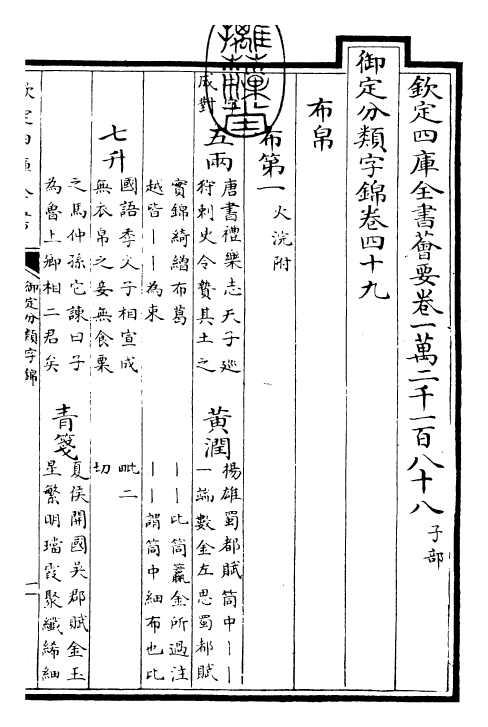 欽定四庫全書薈要卷一萬二千一百八十八 子部
御定分類字錦卷四十九
布帛
布第一 火浣附
字
成對
五兩
唐書禮樂志天子巡
狩刺史令贊其土之
實錦綺繒布葛
越皆——為束
黃潤
楊雄蜀都賦筒中——
一端數金左思蜀都賦
——比筒籯金所過注
——謂筒中細布也比
毗二
切
七升
國語季文子相宣成
無衣帛之妾無食粟
之馬仲孫它諫曰子
為魯上卿相二君矣
青箋
夏侯開國吳郡賦金玉
星繁明璫霞聚纖絺細
欽定四庫全書
御定分類字錦
一
摛藻堂